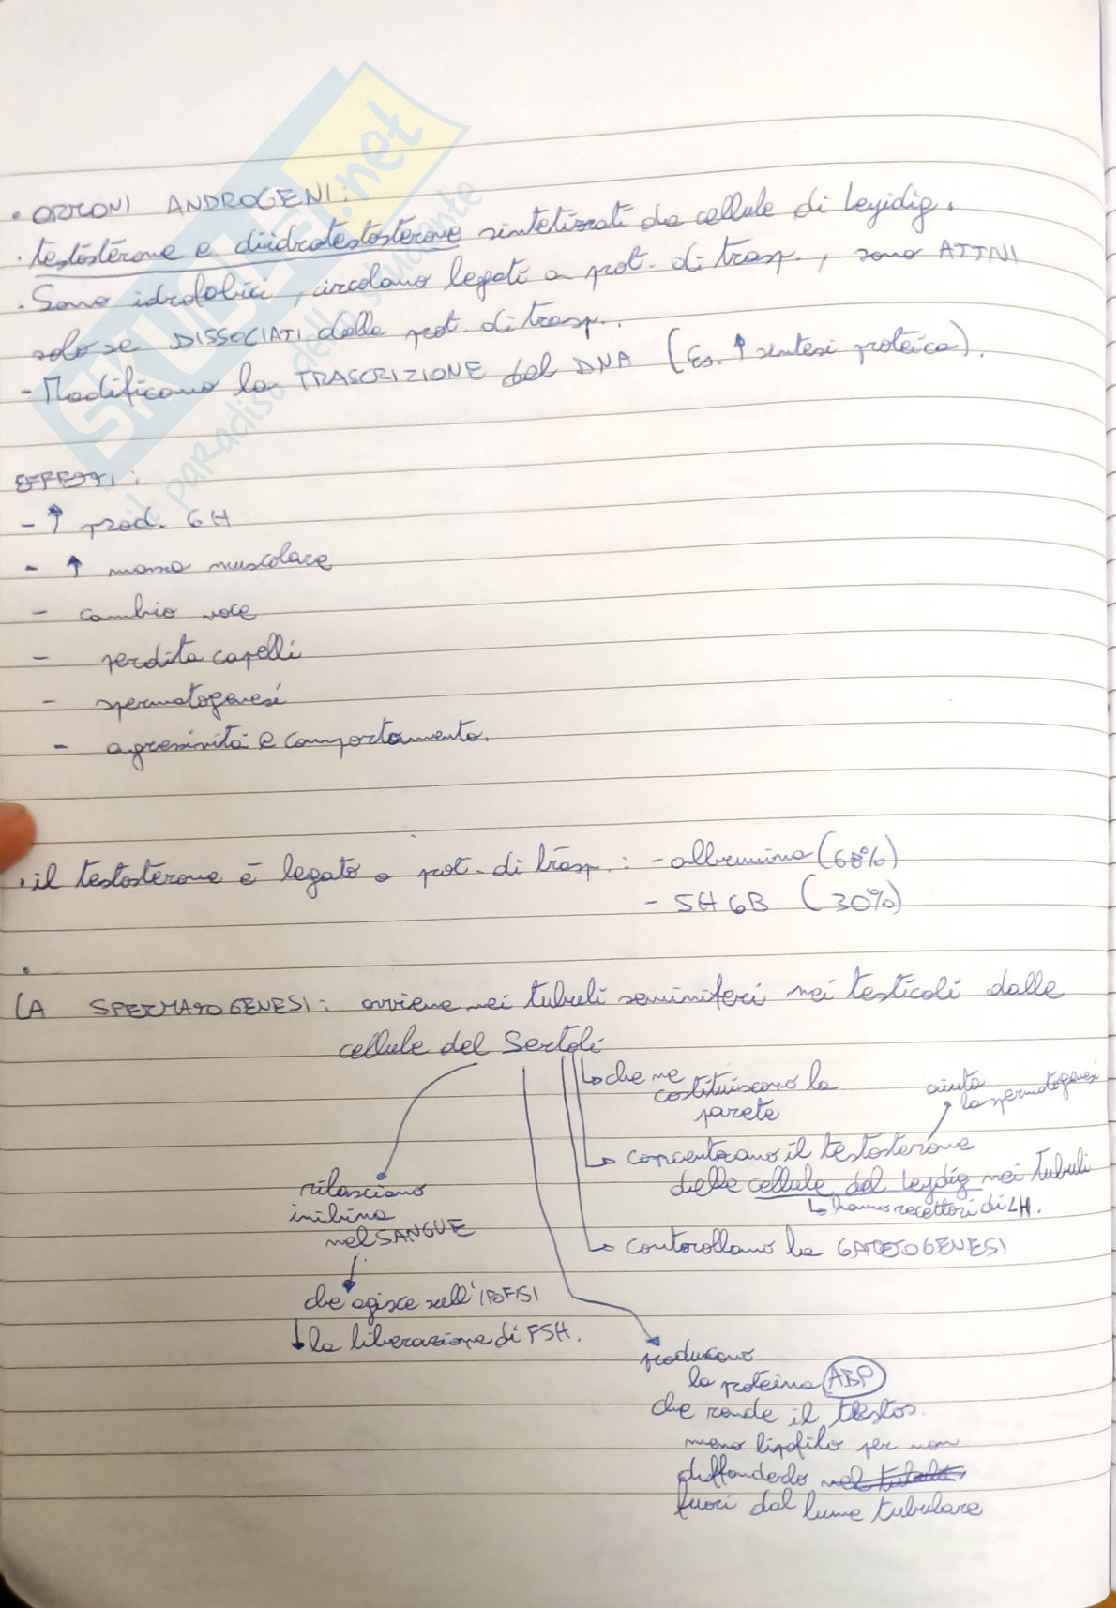 • ORMONI ANDROGENI:
· testosterone e diidrotestosterone sintetizzati da cellule di Leyidig.
· Sono idrofobici, circolano legati a prot. di trasp., sono ATTIVI
solo se DISSOCIATI dalla prot. di trasp..
- Modificano la TRASCRIZIONE del DNA (Es. ↑ sintesi proteica).
EFFETTI:
- ↑ prod. GH
- ↑ massa muscolare
- cambio voce
- perdita capelli
- spermatogenesi
- agressività e comportamento.
· il testosterone è legato a prot. di trasp.: - albumina (68%)
- SHGB (30%)
•
LA SPERMATOGENESI: avviene nei tubuli seminiferi nei testicoli dalle
cellule del Sertoli
↳ che ne
costituiscono la
parete
aiuta
la spermatogenesi
↳ concentrano il testosterone
delle cellule del Leydig nei tubuli
↳ hanno recettori di LH.
↳ contorollano la GAMETOGENESI
rilasciano
inibina
nel SANGUE
che agisce sull'IPOFISI
↓ la liberazione di FSH.
producono
la proteina ABP
che rende il testos.
meno lipofilo per non
diffonderlo nel tubulo
fuori dal lume tubulare
SKUOLA.net
il paradiso dello studente